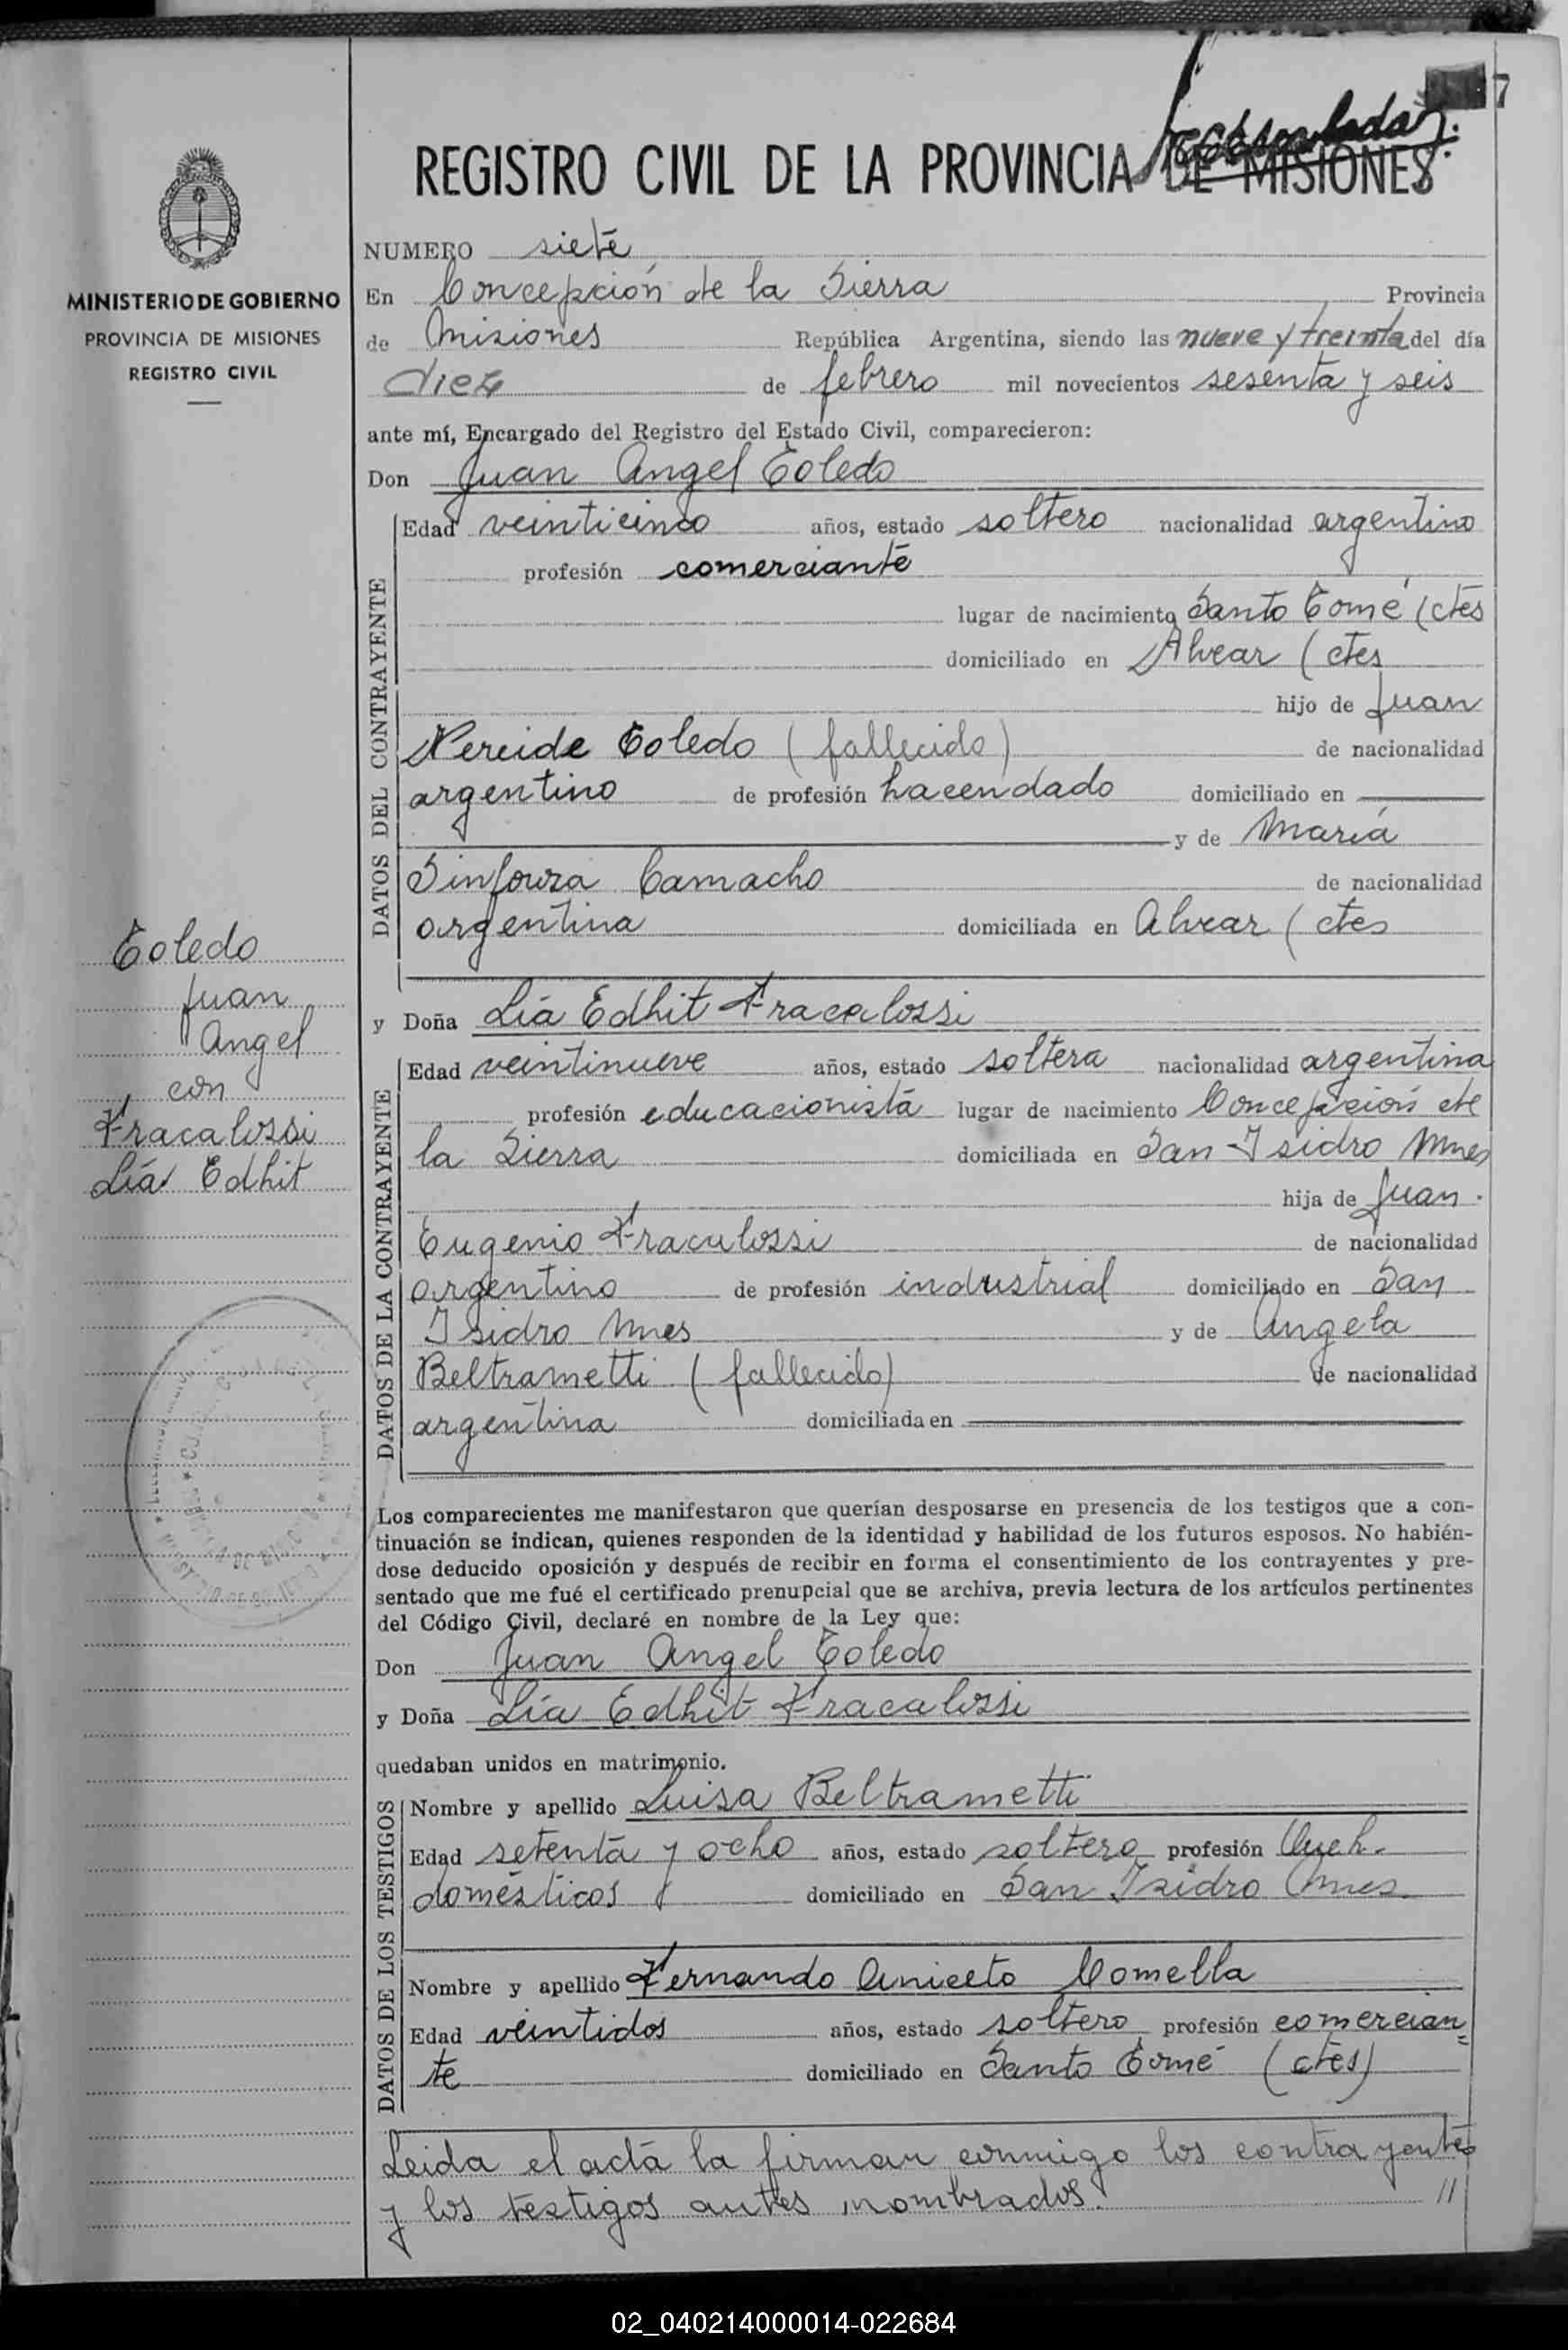 7
REGISTRO CIVIL DE LA PROVINCIA DE MISIONES
MINISTERIO DE GOBIERNO
PROVINCIA DE MISIONES
REGISTRO CIVIL
NUMERO siete
En Concepción de la Sierra Provincia
de Misiones República Argentina, siendo las nueve y treinta del día
diez de febrero mil novecientos sesenta y seis
ante mí, Encargado del Registro del Estado Civil, comparecieron:
Don Juan Angel Toledo
DATOS DEL CONTRAYENTE
Edad veinticinco años, estado soltero nacionalidad argentino
profesión comerciante
lugar de nacimiento Santo Tomé (ctes
domiciliado en Alvear (ctes
hijo de Juan
Nereide Toledo (fallecido) de nacionalidad
argentino de profesión hacendado domiciliado en
y de María
Sinforza Camacho de nacionalidad
argentina domiciliada en Alvear (ctes
Toledo
Juan
Angel
con
Fracalossi
Lía Edhit
y Doña Lía Edhit Fracalossi
DATOS DE LA CONTRAYENTE
Edad veintinueve años, estado soltera nacionalidad argentina
profesión educacionista lugar de nacimiento Concepción de
la Sierra domiciliada en San Isidro Mnes
hija de Juan
Eugenio Fracalossi de nacionalidad
argentino de profesión industrial domiciliado en San
Isidro Mnes y de Angela
Beltrametti (fallecido) de nacionalidad
argentina domiciliada en
Los comparecientes me manifestaron que querían desposarse en presencia de los testigos que a con-
tinuación se indican, quienes responden de la identidad y habilidad de los futuros esposos. No habién-
dose deducido oposición y después de recibir en forma el consentimiento de los contrayentes y pre-
sentado que me fué el certificado prenupcial que se archiva, previa lectura de los artículos pertinentes
del Código Civil, declaré en nombre de la Ley que:
Don Juan Angel Toledo
y Doña Lía Edhit Fracalossi
quedaban unidos en matrimonio.
DATOS DE LOS TESTIGOS
Nombre y apellido Luisa Beltrametti
Edad setenta y ocho años, estado soltera profesión Queh.
domésticos domiciliado en San Isidro Mnes
Nombre y apellido Fernando Aniceto Comella
Edad veintidos años, estado soltero profesión comercian=
te domiciliado en Santo Tomé (ctes)
Leida el acta la firman conmigo los contrayentes
y los testigos antes nombrados. //
02_040214000014-022684